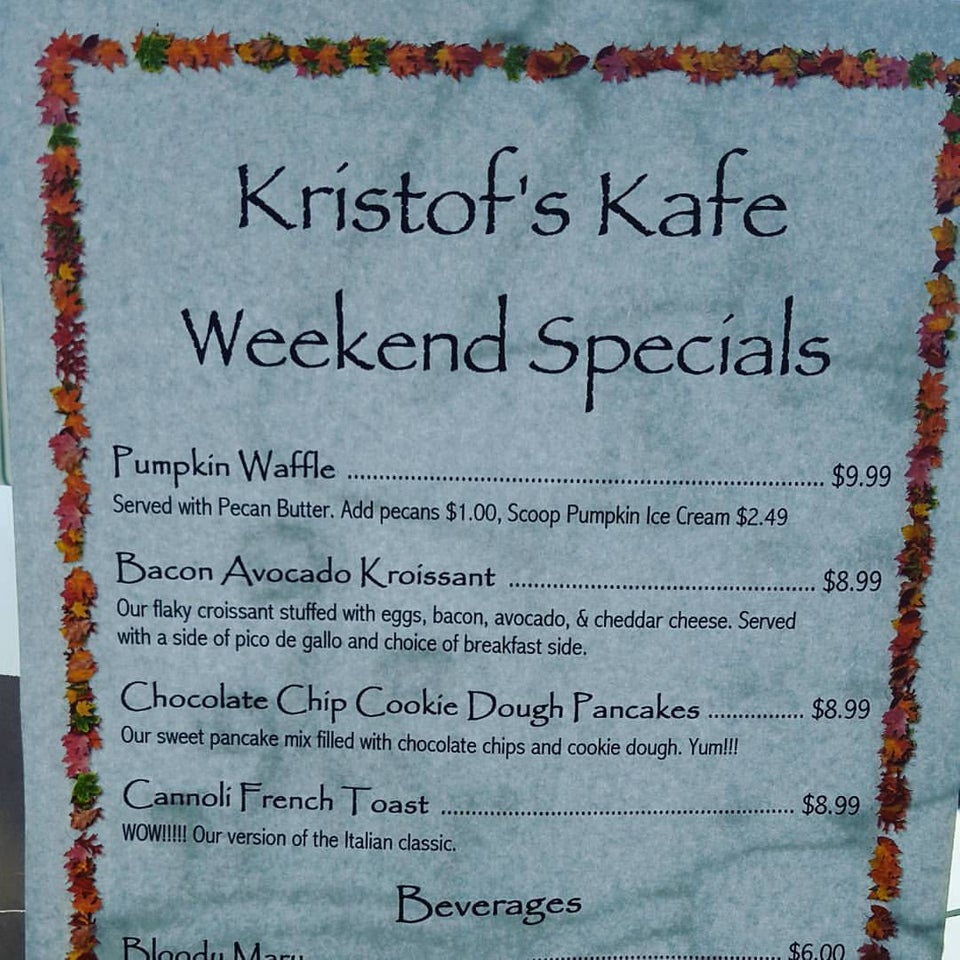 Kristof's Kafe
Weekend Specials
Pumpkin Waffle ........................................................................ $9.99
Served with Pecan Butter. Add pecans $1.00, Scoop Pumpkin Ice Cream $2.49
Bacon Avocado Kroissant ............................................... $8.99
Our flaky croissant stuffed with eggs, bacon, avocado, & cheddar cheese. Served
with a side of pico de gallo and choice of breakfast side.
Chocolate Chip Cookie Dough Pancakes ................ $8.99
Our sweet pancake mix filled with chocolate chips and cookie dough. Yum!!!
Cannoli French Toast ...................................................... $8.99
WOW!!!!! Our version of the Italian classic.
Beverages
Bloody Mary ...................................... $6.00